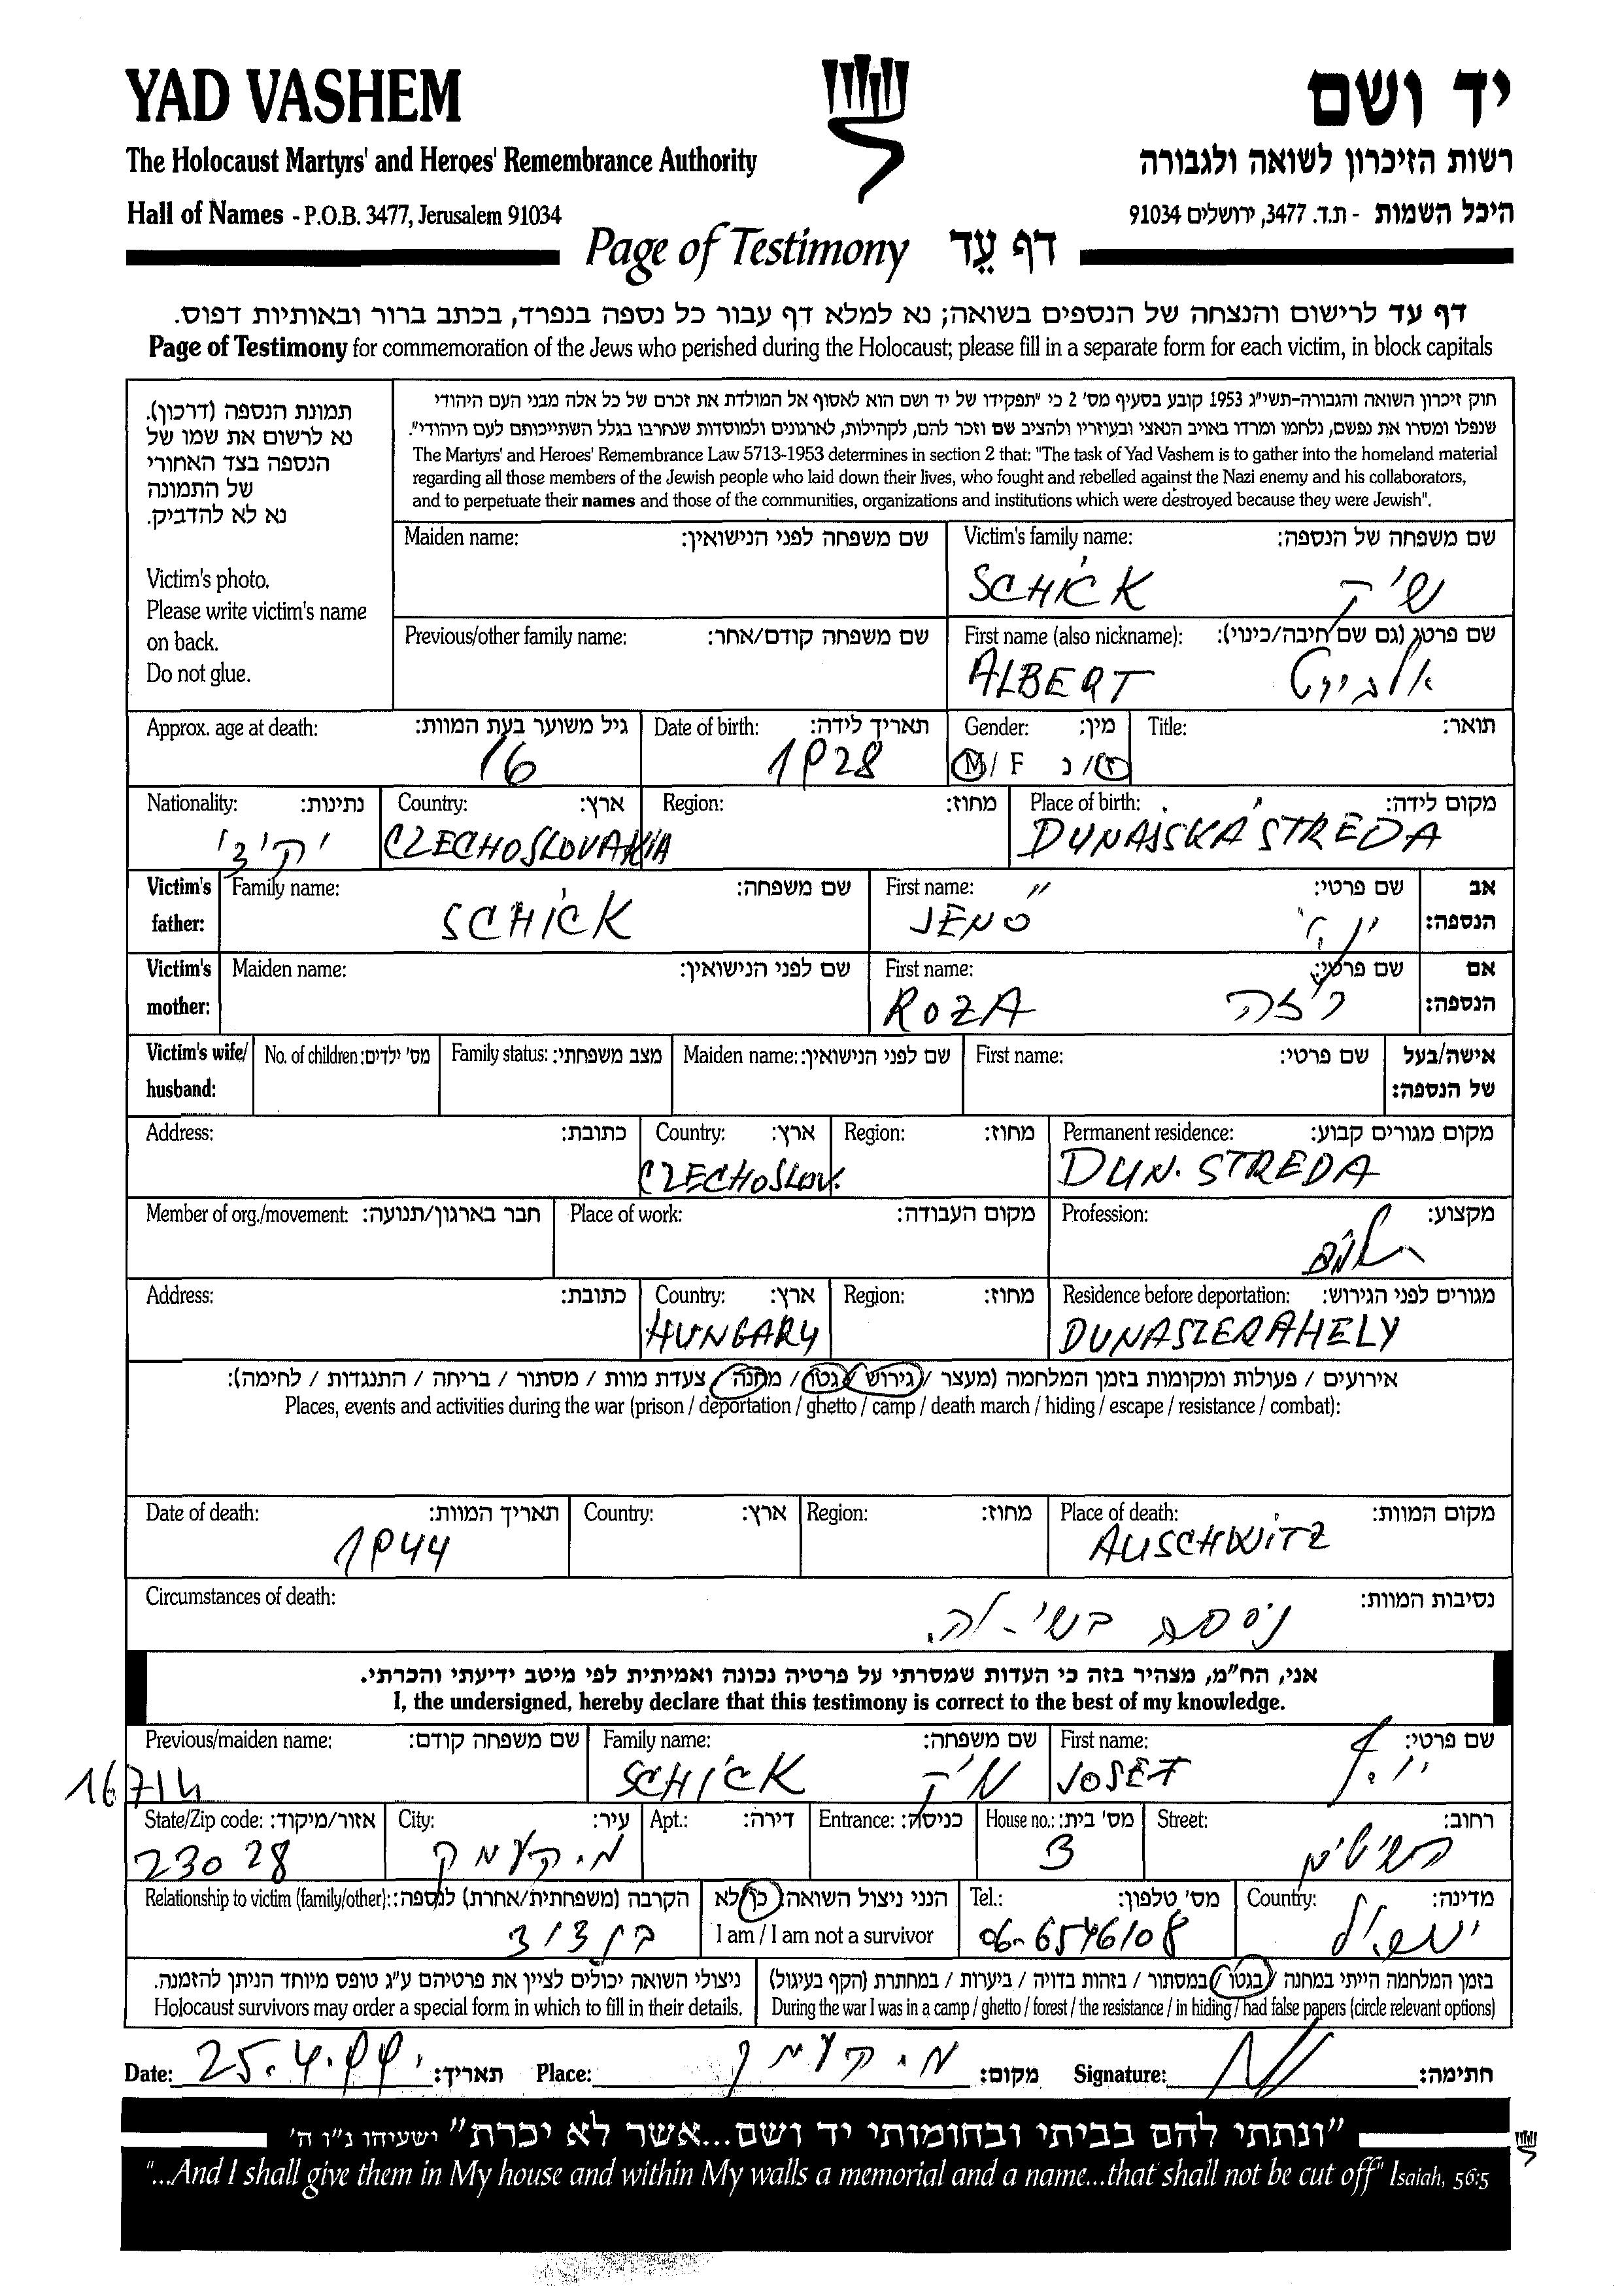 YAD VASHEM
יד ושם
The Holocaust Martyrs' and Heroes' Remembrance Authority
רשות הזיכרון לשואה ולגבורה
Hall of Names - P.O.B. 3477, Jerusalem 91034
היכל השמות - ת.ד. 3477, ירושלים 91034
Page of Testimony דף עֵד
דף עד לרישום והנצחה של הנספים בשואה; נא למלא דף עבור כל נספה בנפרד, בכתב ברור ובאותיות דפוס.
Page of Testimony for commemoration of the Jews who perished during the Holocaust; please fill in a separate form for each victim, in block capitals
תמונת הנספה (דרכון).
נא לרשום את שמו של
הנספה בצד האחורי
של התמונה
נא לא להדביק.
Victim's photo.
Please write victim's name
on back.
Do not glue.
חוק זיכרון השואה והגבורה-תשי"ג 1953 קובע בסעיף מס' 2 כי "תפקידו של יד ושם הוא לאסוף אל המולדת את זכרם של כל אלה מבני העם היהודי
שנפלו ומסרו את נפשם, נלחמו ומרדו באויב הנאצי ובעוזריו ולהציב שם וזכר להם, לקהילות, לארגונים ולמוסדות שנחרבו בגלל השתייכותם לעם היהודי".
The Martyrs' and Heroes' Remembrance Law 5713-1953 determines in section 2 that: "The task of Yad Vashem is to gather into the homeland material
regarding all those members of the Jewish people who laid down their lives, who fought and rebelled against the Nazi enemy and his collaborators,
and to perpetuate their names and those of the communities, organizations and institutions which were destroyed because they were Jewish".
Maiden name: שם משפחה לפני הנישואין: Victim's family name: שם משפחה של הנספה:
SCHICK שיק
Previous/other family name: שם משפחה קודם/אחר: First name (also nickname): שם פרטי (גם שם חיבה/כינוי):
ALBERT אלבירט
Approx. age at death: גיל משוער בעת המוות: Date of birth: תאריך לידה: Gender: מין: Title: תואר:
16 1928 M / F ז / נ
Nationality: נתינות: Country: ארץ: Region: מחוז: Place of birth: מקום לידה:
CZECHOSLOVAKIA DUNAJSKÁ STREDA
Victim's father: Family name: שם משפחה: First name: שם פרטי: אב הנספה:
SCHICK JENŐ
Victim's mother: Maiden name: שם לפני הנישואין: First name: שם פרטי: אם הנספה:
ROZA רוזה
Victim's wife/ husband: No. of children: מס' ילדים: Family status: מצב משפחתי: Maiden name: שם לפני הנישואין: First name: שם פרטי: אישה/בעל של הנספה:
Address: כתובת: Country: ארץ: Region: מחוז: Permanent residence: מקום מגורים קבוע:
CZECHOSLOV. DUN. STREDA
Member of org./movement: חבר בארגון/תנועה: Place of work: מקום העבודה: Profession: מקצוע:
Address: כתובת: Country: ארץ: Region: מחוז: Residence before deportation: מגורים לפני הגירוש:
HUNGARY DUNASZERAHELY
אירועים / פעולות ומקומות בזמן המלחמה (מעצר / גירוש / גטו / מחנה / צעדת מוות / מסתור / בריחה / התנגדות / לחימה):
Places, events and activities during the war (prison / deportation / ghetto / camp / death march / hiding / escape / resistance / combat):
Date of death: תאריך המוות: Country: ארץ: Region: מחוז: Place of death: מקום המוות:
1944 AUSCHWITZ
Circumstances of death: נסיבות המוות:
ניספה בשואה.
אני, הח"מ, מצהיר בזה כי העדות שמסרתי על פרטיה נכונה ואמיתית לפי מיטב ידיעתי והכרתי.
I, the undersigned, hereby declare that this testimony is correct to the best of my knowledge.
Previous/maiden name: שם משפחה קודם: Family name: שם משפחה: First name: שם פרטי:
SCHICK שיק JOSEF יוסף
167/4
State/Zip code: אזור/מיקוד: City: עיר: Apt.: דירה: Entrance: כניסה: House no.: מס' בית: Street: רחוב:
23028 מ. העמק 3
Relationship to victim (family/other): הקרבה (משפחתית/אחרת) לנספה: הנני ניצול השואה: כן/לא Tel.: מס' טלפון: Country: מדינה:
I am / I am not a survivor
בן דוד 06-6546108 ישראל
ניצולי השואה יכולים לציין את פרטיהם ע"ג טופס מיוחד הניתן להזמנה. בזמן המלחמה הייתי במחנה / בגטו / במסתור / בזהות בדויה / ביערות / במחתרת (הקף בעיגול)
Holocaust survivors may order a special form in which to fill in their details. During the war I was in a camp / ghetto / forest / the resistance / in hiding / had false papers (circle relevant options)
Date: 25.4.99 תאריך: Place: מ. העמק מקום: Signature: חתימה:
"ונתתי להם בביתי ובחומותי יד ושם...אשר לא יכרת" ישעיהו נ"ו ה'
"...And I shall give them in My house and within My walls a memorial and a name...that shall not be cut off" Isaiah, 56:5